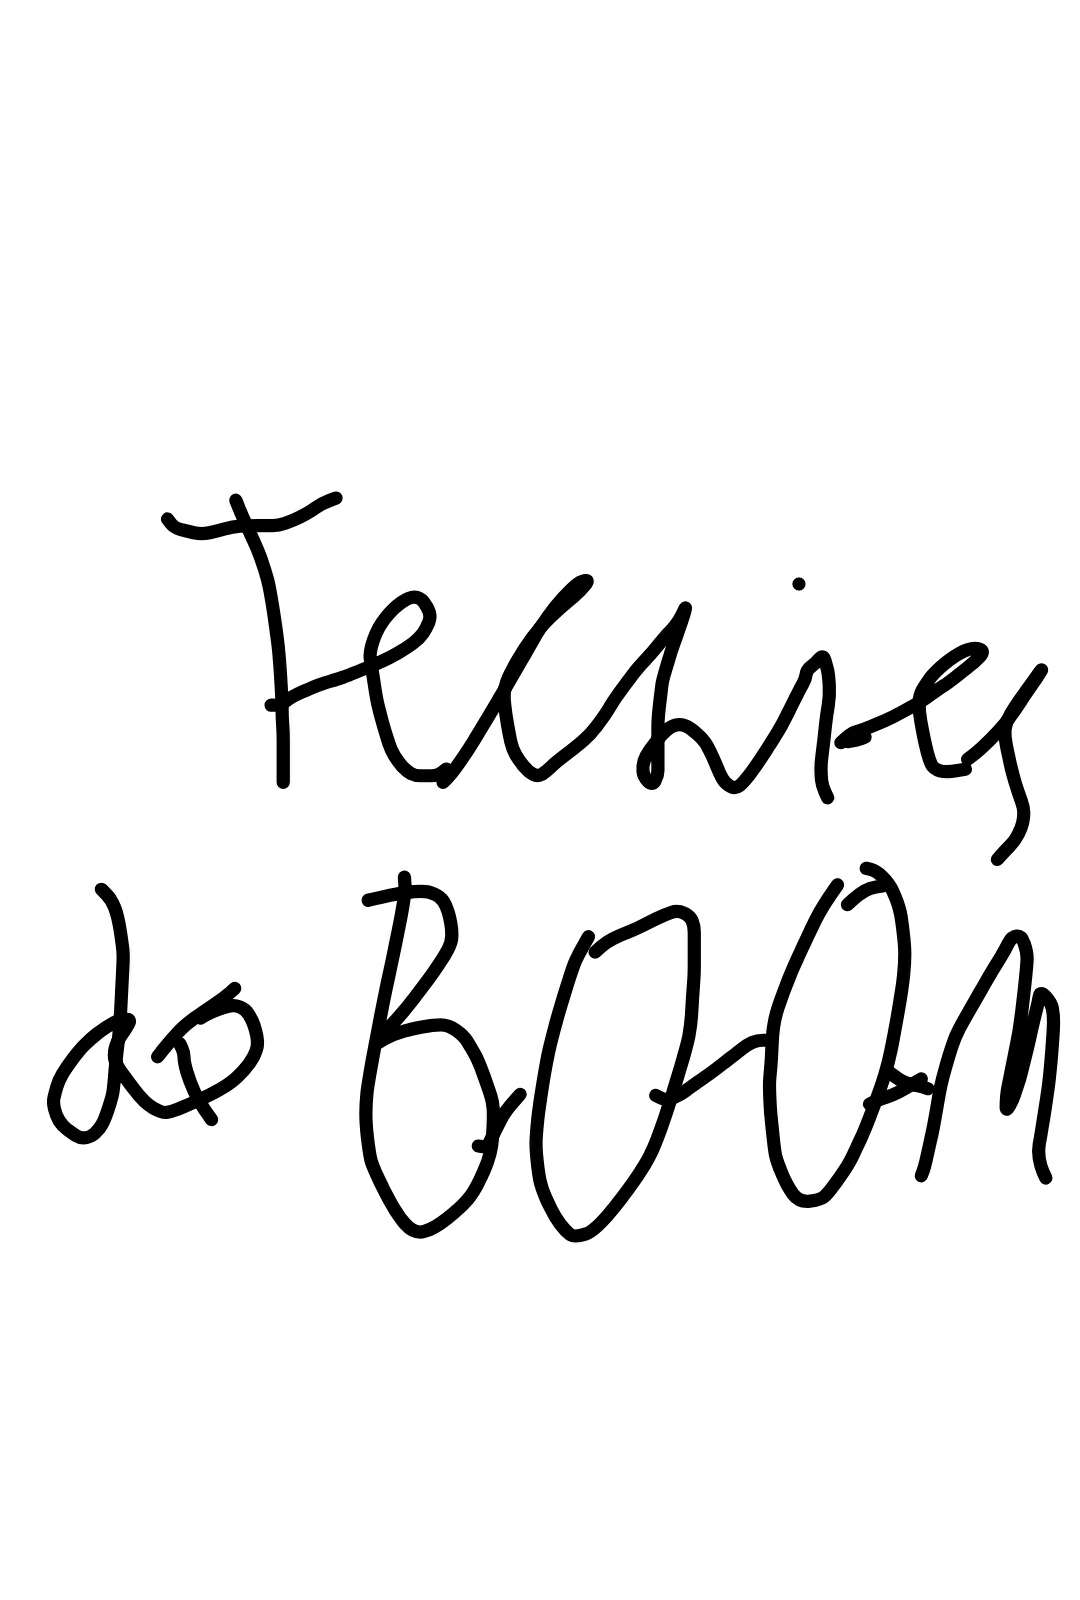 Techies
do BOOM